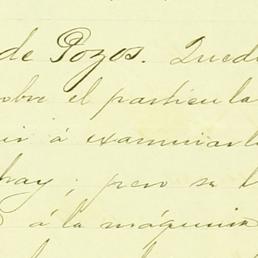 de Pozos. Qued
sobre el particula
ir á examinarl
hay; pero se
á la máquina